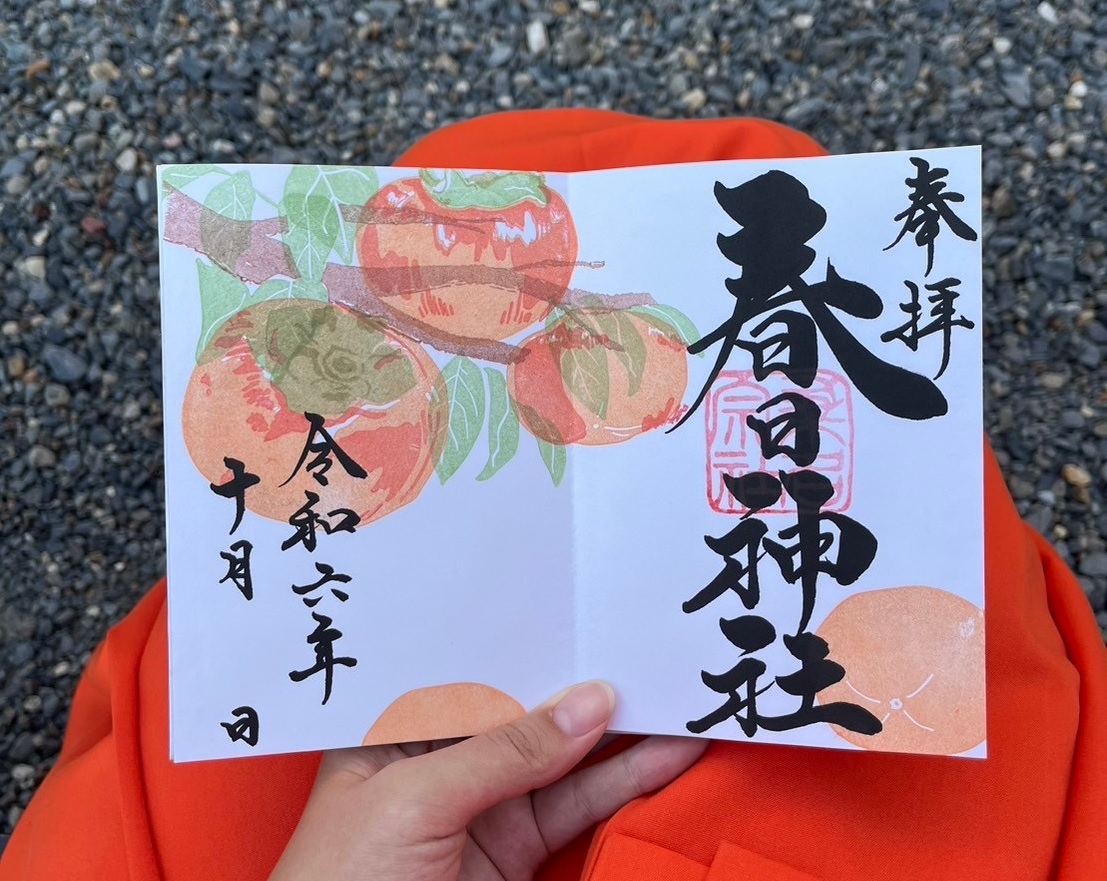 奉拝
春日神社
令和六年
十月 日